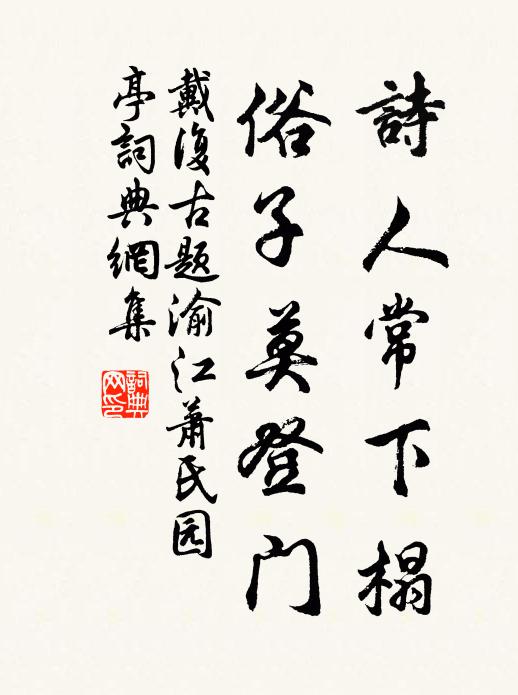 詩人常下榻
俗子莫登门
戴復古题渝江萧氏园
亭詞典網集
詞典网印